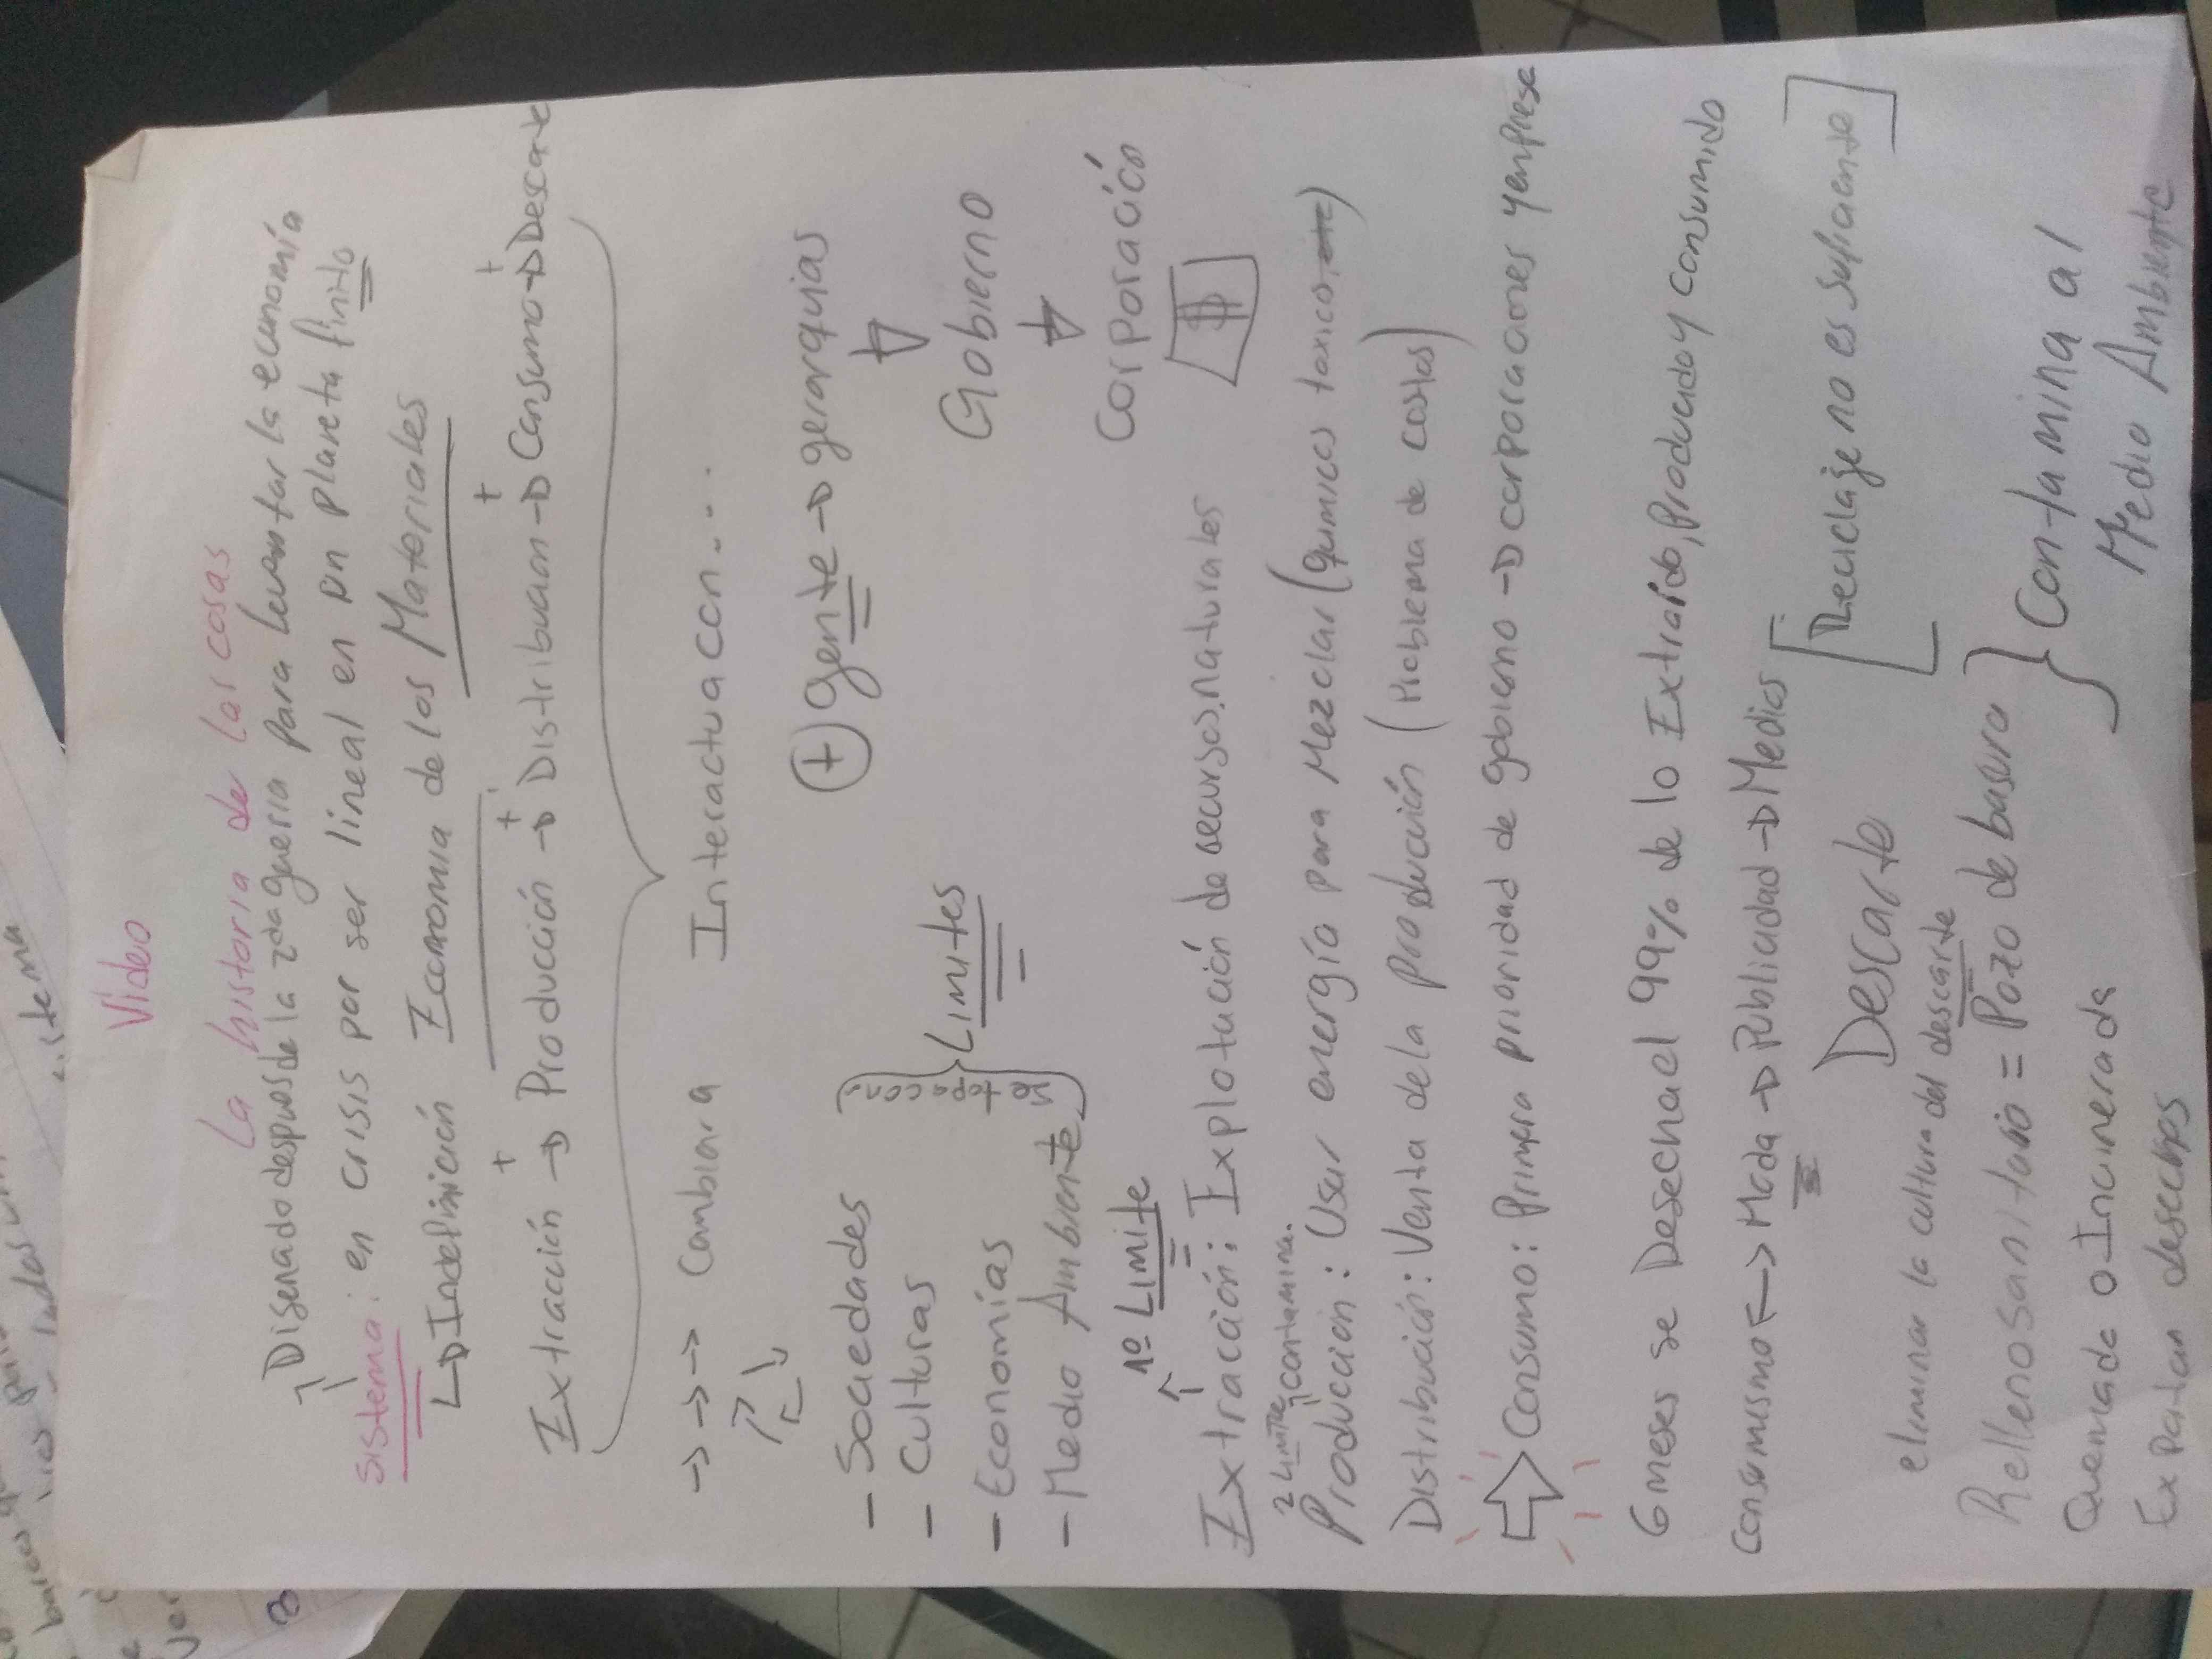 Video
La historia de las cosas
Disenado despues de la 2da guerra para levantar la economía
Sistema: en crisis por ser lineal en un planeta finito
Indefinición Economia de los Materiales
Extracción + → Producción + → Distribución + → Consumo + → Descarte
→ → → Cambiara Interactua con...
- Sociedades
- Culturas
- Economías
- Medio Ambiente
se topa con
Limites
+ gente → gerarquias
Gobierno
Corporación
$
1º Limite
Extracción: Explotación de recursos naturales
2 Limite, contamina.
Producción: Usar energía para Mezclar (quimicos toxicos etc)
Distribución: Venta de la producción (Problema de costos)
Consumo: Primera prioridad de gobierno → corporaciones y enprese
6 meses se Desecha el 99% de lo Extraido, Producido y consumido
Consumismo <-> Moda → Publicidad → Medios
Descarte
[Reciclaje no es suficiente]
eliminar la cultura del descarte
Relleno sanitario = Pozo de basura
Quemada o Incinerada
Exportan desechos
Contamina al
Medio Ambiente